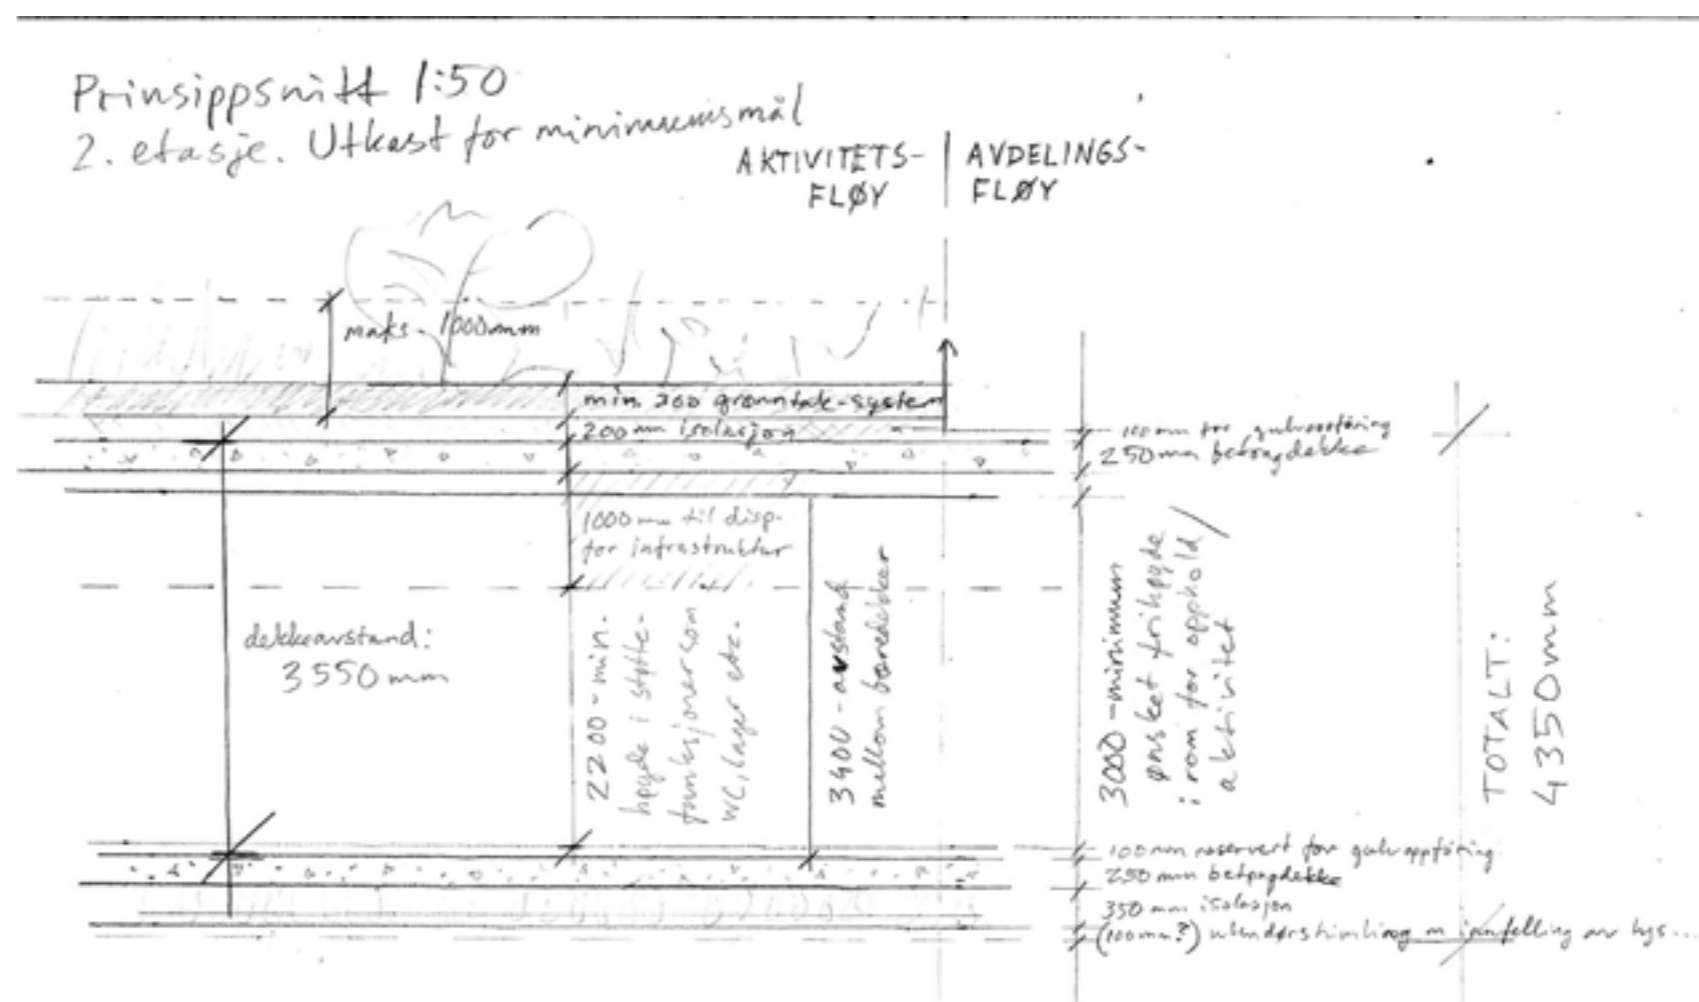 Prinsippsnitt 1:50
2. etasje. Utkast for minimumsmål
AKTIVITETS-
FLØY
AVDELINGS-
FLØY
maks. 1000mm
min. 200 grønntak-system
200mm isolasjon
100mm for gulvoppføring
250mm betongdekke
1000mm til disp.
for infrastruktur
dekkeavstand:
3550mm
2200-min.
høyde i støtte-
funksjoner som
WC, lager etc.
3400-avstand
mellom bæredekker
3000-minimum
ønsket frihøyde
i rom for opphold/
aktivitet
TOTALT:
4350mm
100mm reservert for gulvoppføring
250mm betongdekke
350mm isolasjon
(100mm?) utendørshimling m innfelling av lys...